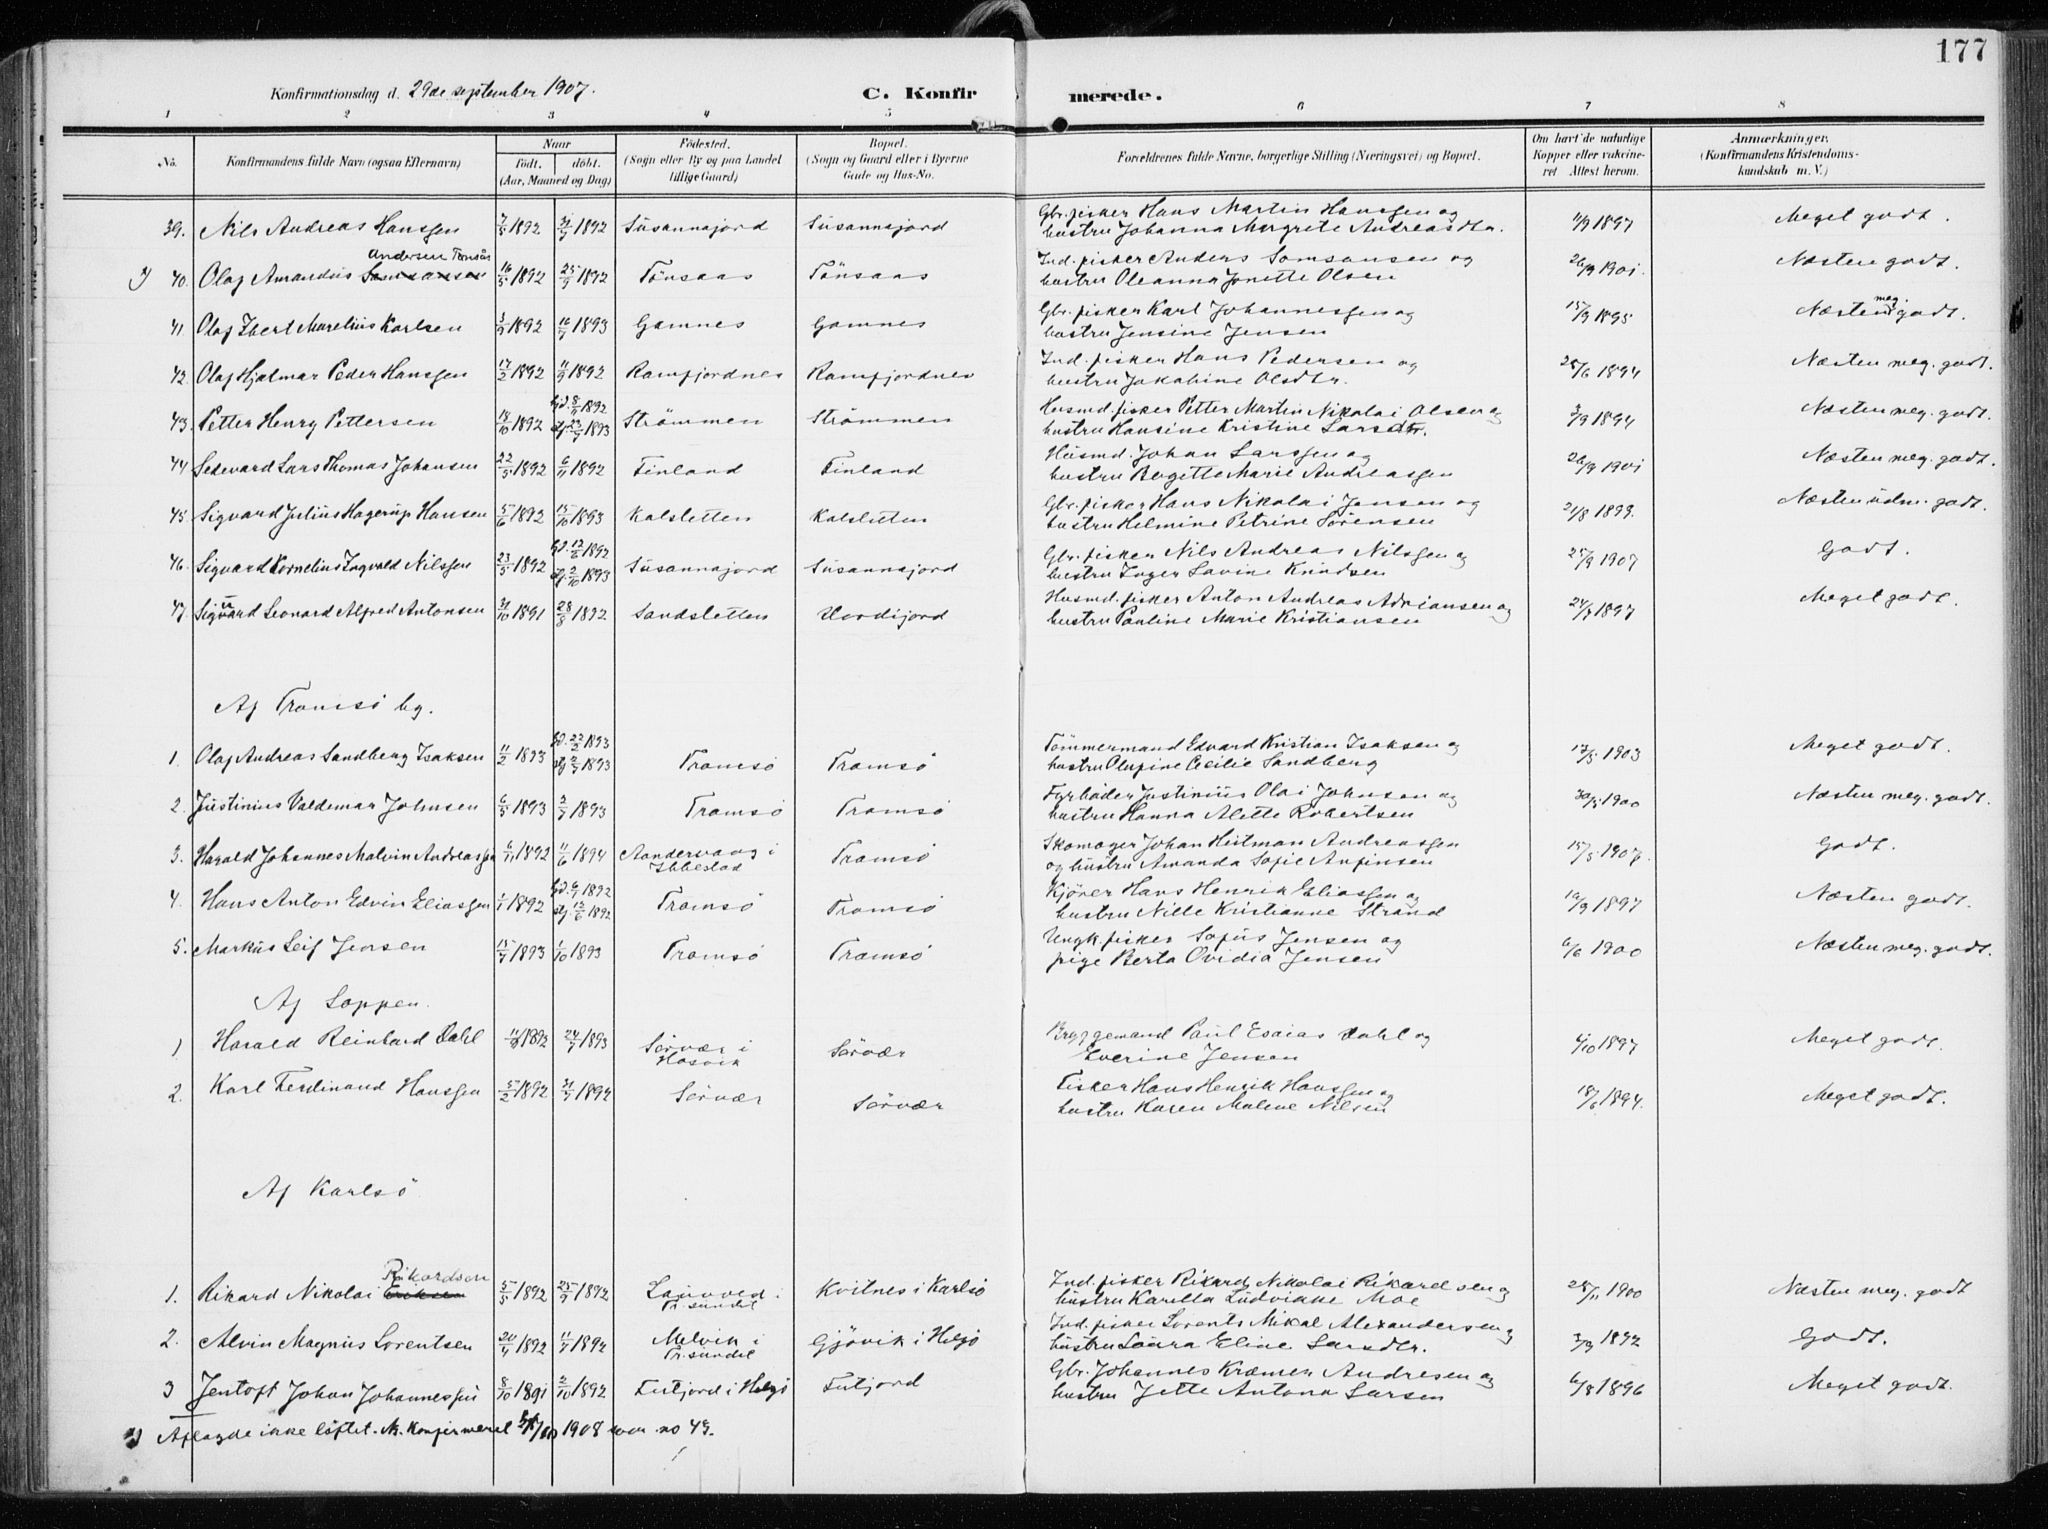 177
Konfirmationsdag d. 29de september 1907. C. Konfirmerede.
1 2 3 4 5 6 7 8
No. Konfirmandens fulde Navn (ogsaa Efternavn) Naar født. døbt. (Aar, Maaned og Dag) Fødested. (Sogn eller By og paa Landet tillige Gaard) Bopæl. (Sogn og Gaard eller i Byerne Gade og Hus-No. Forældrenes fulde Navne, borgerlige Stilling (Næringsvei) og Bopæl. Om havt de naturlige Kopper eller vakcineret Attest herom. Anmærkninger. (Konfirmandens Kristendomskundskab m. V.)
39. Nils Andreas Hanssen 7/5 1892 31/7 1892 Susannajord Susannajord Gbr. fisker Hans Martin Hanssen og hustru Johanna Margrete Andreasdtr. 11/9 1897 Meget godt.
1) 40. Olaf Amandus Samsonsen Andersen Tønsås 16/5 1892 25/9 1892 Tönsaas Tönsaas Ind. fisker Anders Samsonsen og hustru Oleanna Jonette Olsen 26/9 1901. Næsten godt.
41. Olaf Ebert Marelius Karlsen 3/9 1892 16/7 1893 Gamnes Gamnes Gbr. fisker Karl Johannessen og hustru Jensine Jensen 15/9 1895 Næsten meg. godt.
42. Olaf Hjalmar Peder Hanssen 17/2 1892 11/9 1892 Ramfjordnes Ramfjordnes Ind. fisker Hans Pedersen og hustru Jakobine Olsdtr. 25/6 1894 Næsten meg. godt.
43. Petter Henry Pettersen 18/10 1892 Gd. 8/11 1892 stf. 23/7 1893 Strömmen Strömmen Husmd. fisker Petter Martin Nikolai Olsen og hustru Hansine Kristine Larsdtr. 3/9 1894 Næsten meg. godt.
44 Sedevard Lars Thomas Johansen 22/5 1892 6/11 1892 Finland Finland Husmd. Johan Larssen og hustru Bergitte Marie Andreassen 26/9 1901 Næsten meg. godt.
45 Sigvard Julius Hagerup Hansen 5/6 1892 15/10 1893 Kalsletten Kalsletten Gbr. fisker Hans Nikolai Jensen og hustru Helmine Petrine Sörensen 21/8 1899. Næsten udm. godt.
46. Sigvard Kornelius Ingvald Nilssen 23/5 1892 Gd. 12/6 1892 stf. 2/10 1893 Susannajord Susannajord Gbr. fisker Nils Andreas Nilssen og hustru Inger Lavine Knudsen 25/9 1907 Godt.
47. Sigurd Leonard Alfred Antonsen 31/10 1891 28/8 1892 Sandsletten Hordijord Husmd. fisker Anton Andreas Adriansen og hustru Pauline Marie Kristiansen 24/7 1897 Meget godt.
Af Tromsö by.
1. Olaf Andreas Sandberg Isaksen 11/2 1893 Gd. 22/2 1893 stf. 2/7 1893 Tromsö Tromsö Tömmermand Edvard Kristian Isaksen og hustru Olufine Cecilie Sandberg 17/5 1903 Meget godt.
2. Justinius Valdemar Johnsen 6/5 1893 2/7 1893 Tromsö Tromsö Fyrböder Justinius Olai Johnsen og hustru Hanna Alette Robertsen 30/5 1900 Næsten meg. godt.
3. Harald Johannes Malvin Andreassen 6/11 1892 11/6 1894 Aandervaag i Ibbestad Tromsö Skomager Johan Heitman Andreassen og hustru Amanda Sofie Anfinsen 15/5 1907. Godt.
4. Hans Anton Edvin Eliassen 1/1 1892 Gd. 6/1 1892 stf. 12/6 1892 Tromsö Tromsö Kjörer Hans Henrik Eliassen og hustru Nille Kristianne Strand 10/9 1897 Næsten godt.
5. Markus Leif Jensen 15/7 1893 1/10 1893 Tromsö Tromsö Ungk. fisker Sofus Jensen og pige Berta Ovidia Jensen 6/6 1900 Næsten meg. godt.
Af Loppen.
1 Harald Reinhard Dahl 1892 24/7 1893 Sörvær i Hasvik Sörvær Bryggemand Paul Esaias Dahl og Everine Jensen 4/10 1897 Meget godt.
2. Karl Ferdinand Hanssen 5/2 1892 31/7 1892 Sörvær Sörvær Fisker Hans Henrik Hanssen og hustru Karen Malene Nilsen 18/6 1894. Meget godt.
Af Karlsö
1. Rikard Nikolai Eriksen Rikardsen 5/5 1892 25/9 1892 Tr. sundet Kvitnes i Karlsö Ind. fisker Rikard Nikolai Rikardsen og hustru Karella Ludvikke Moe 28/11 1900 Næsten meg. godt
2. Alvin Magnus Lorentsen 20/4 1892 11/9 1892 Melvik i Tr. sundet Gjövik i Helgö Ind. fisker Lorents Mikal Alexandersen og hustru Laura Eline Larsdtr. 3/9 1892 Godt.
3 Jentoft Johan Johannessen 8/10 1891 2/10 1892 Futjord i Helgö Futjord Gbr. Johannes Kræmer Andresen og hustru Jette Antona Larsen 6/8 1896 Meget godt.
1) Aflagde ikke löftet. Konfirmeret 1908 som no 49.